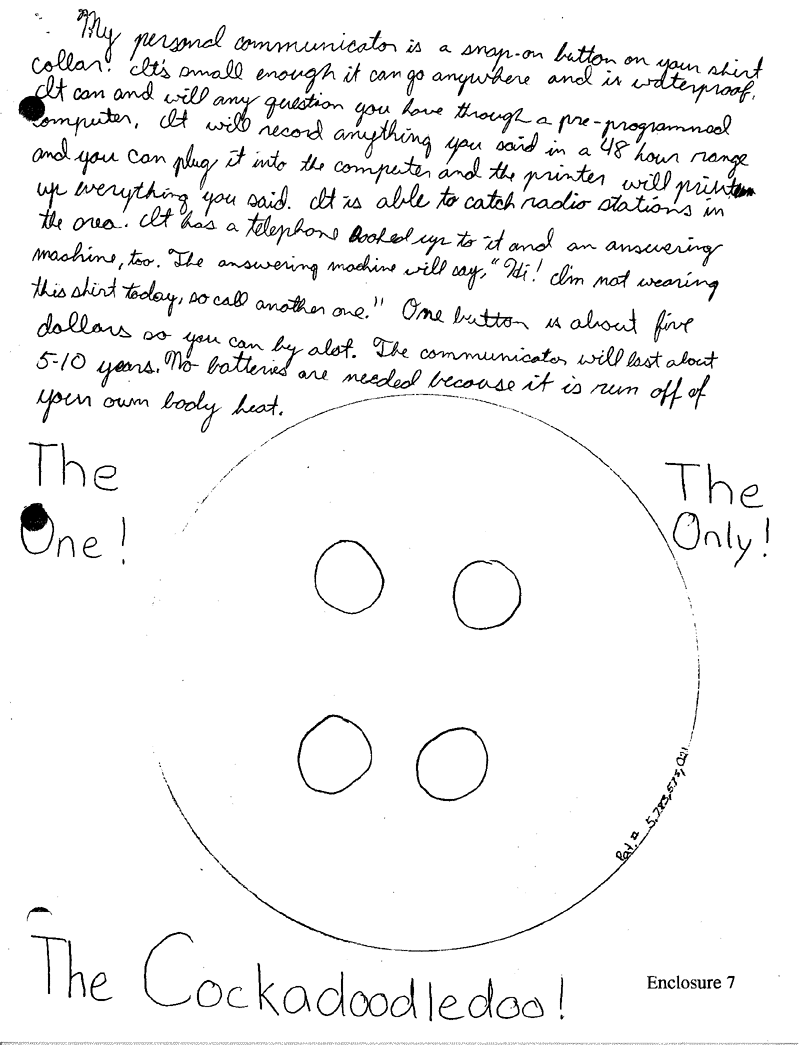 My personal communicator is a snap-on button on your shirt
collar. It's small enough it can go anywhere and is waterproof.
It can and will any question you have through a pre-programmed
computer. It will record anything you said in a 48 hour range
and you can plug it into the computer and the printer will print
up everything you said. It is able to catch radio stations in
the area. It has a telephone hooked up to it and an answering
machine, too. The answering machine will say, "Hi! I'm not wearing
this shirt today, so call another one." One button is about five
dollars so you can by alot. The communicator will last about
5-10 years. No batteries are needed because it is run off of
your own body heat.
The
One!
The
Only!
Pat. # 5,783,573,021
The Cockadoodledoo!
Enclosure 7